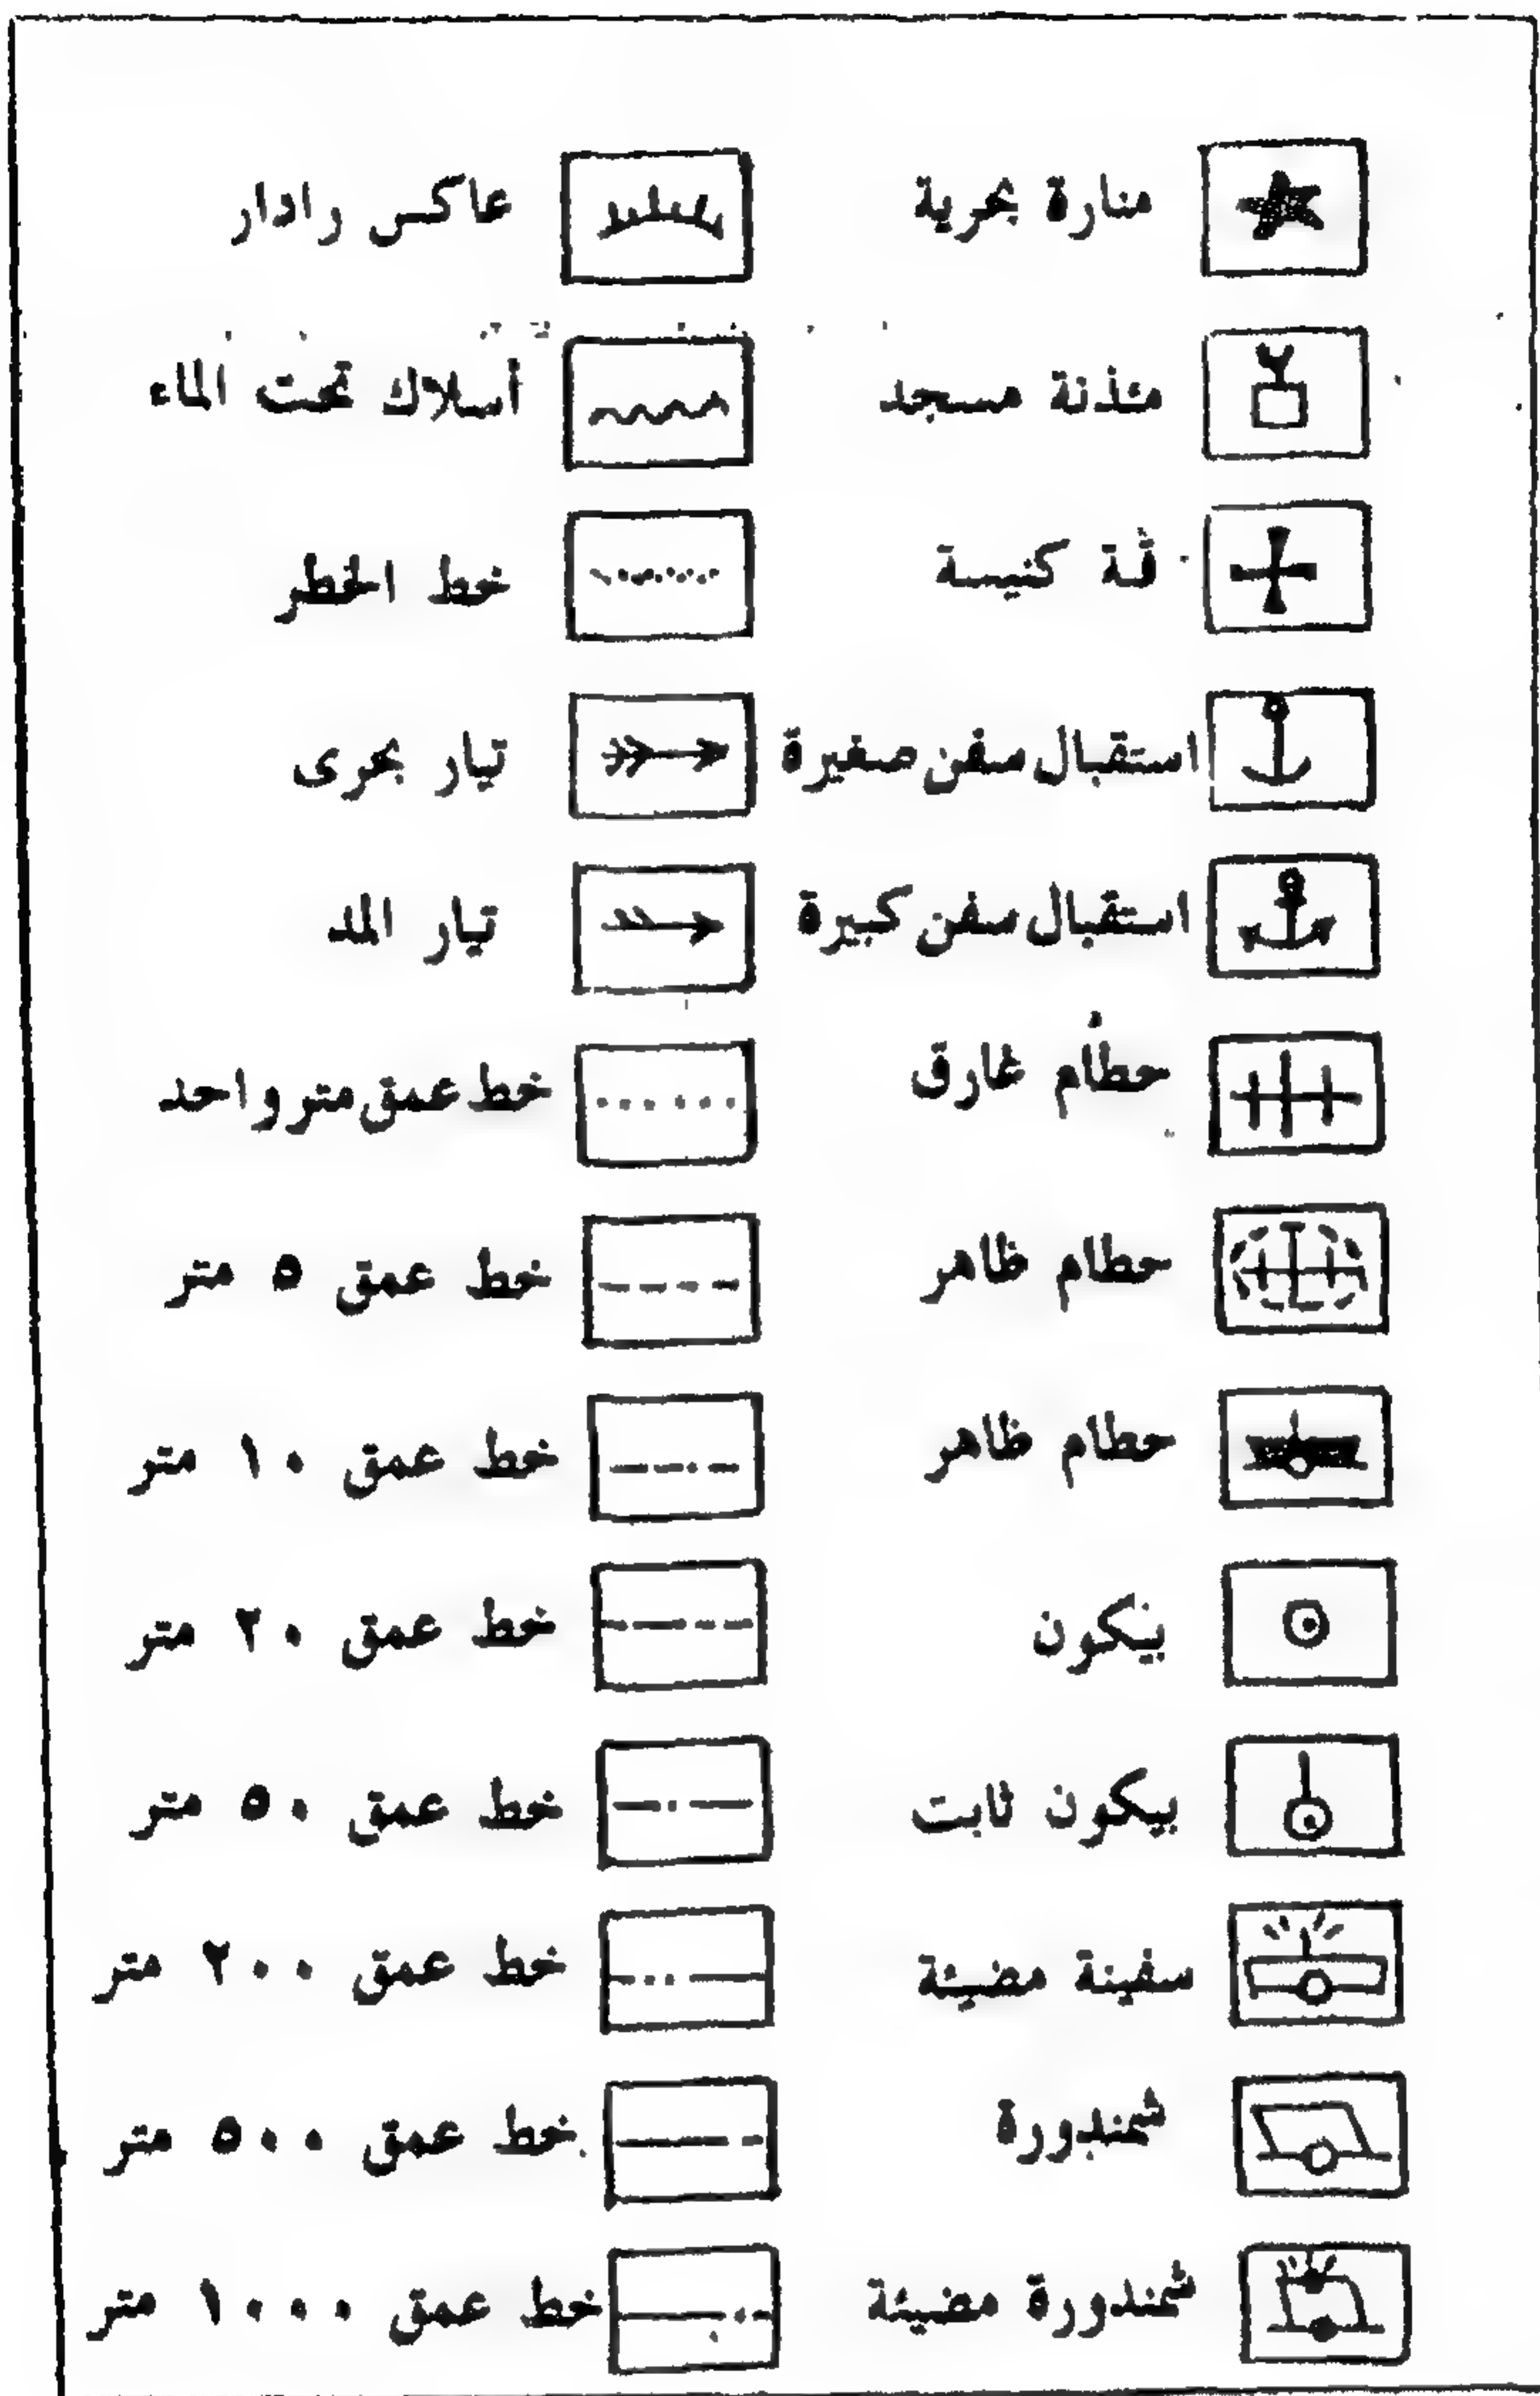 منارة بحرية
مئذنة مسجد
قمة كنيسة
استقبال سفن صغيرة
استقبال سفن كبيرة
حطام غارق
حطام ظاهر
حطام ظاهر
بيكون
بيكون ثابت
سفينة مضيئة
شمندورة
شمندورة مضيئة
عاكس رادار
أسلاك تحت الماء
خط الخطر
تيار بحرى
تيار المد
خط عمق متر واحد
خط عمق ٥ متر
خط عمق ١٠ متر
خط عمق ٢٠ متر
خط عمق ٥٠ متر
خط عمق ٢٠٠ متر
خط عمق ٥٠٠ متر
خط عمق ١٠٠٠ متر